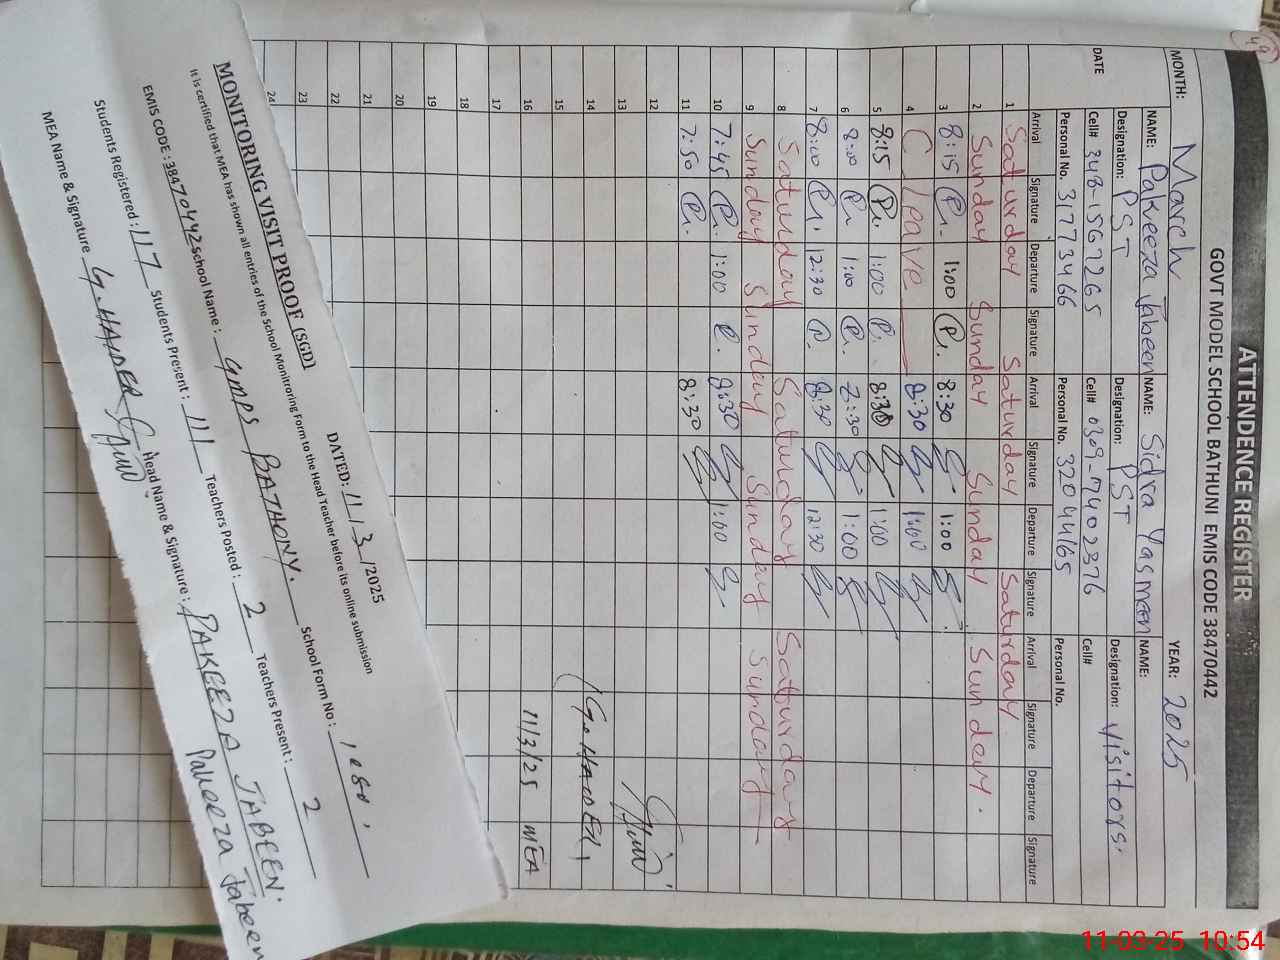 49
ATTENDENCE REGISTER
GOVT MODEL SCHOOL BATHUNI EMIS CODE 38470442
MONTH: March YEAR: 2025
DATE
NAME: Pakeeza Jabeen NAME: Sidra Yasmeen NAME:
Designation: PST Designation: PST Designation: Visitors.
Cell# 348-1567265 Cell# 0309-7402376 Cell#
Personal No. 31773466 Personal No. 32044165 Personal No.
Arrival Signature Departure Signature Arrival Signature Departure Signature Arrival Signature Departure Signature
1 Saturday Saturday Saturday
2 Sunday Sunday Sunday Sunday.
3 8:15 P. 1:00 P. 8:30 1:00
4 C. leave 8:30 1:00
5 8:15 P. 1:00 P. 8:30 1:00
6 8:20 P. 1:00 P. 8:30 1:00
7 8:00 P. 12:30 P. 8:30 12:30
8 Saturday Saturday Saturday
9 Sunday Sunday Sunday Sunday
10 7:45 P. 1:00 P. 8:30 1:00
11 7:50 P. 8:30
12
13
14 (G. HAIDER)
15
16 11/3/25 MEA
17
18
19
20
21
22
23
24
MONITORING VISIT PROOF (SGD) DATED: 11/3/2025
It is certified that MEA has shown all entries of the School Monitroring Form to the Head Teacher before its online submission
EMIS CODE: 38470442 School Name: GMPS BATHONY. School Form No: 1080
Students Registered: 117 Students Present: 111 Teachers Posted: 2 Teachers Present: 2
MEA Name & Signature G. HAIDER Head Name & Signature: PAKEEZA JABEEN.
Pakeeza Jabeen
11-03-25 10:54